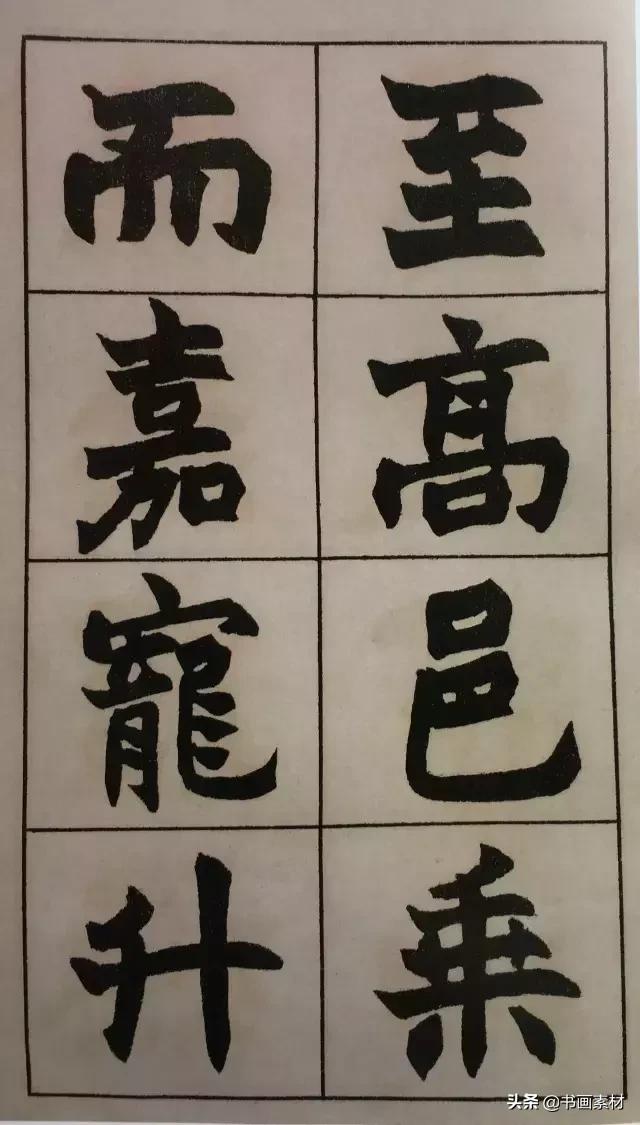 至高邑乗
而嘉寵升
头条 @书画素材